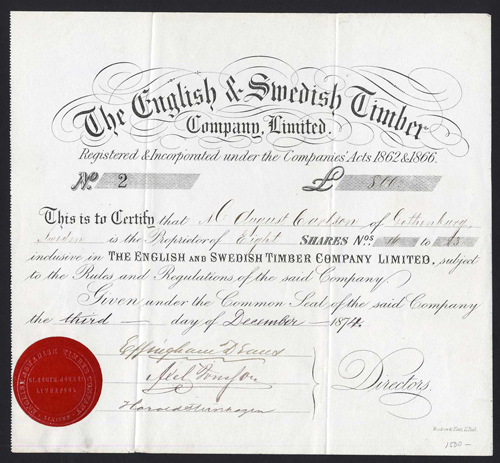 The English & Swedish Timber
Company, Limited.
Registered & Incorporated under the Companies' Acts 1862 & 1866.
No 2 £
This is to Certify that Mr August Carlson of Gothenburg
Sweden is the Proprietor of Eight SHARES Nos. 16 to 23
inclusive in THE ENGLISH AND SWEDISH TIMBER COMPANY LIMITED, subject
to the Rules and Regulations of the said Company.
Given under the Common Seal of the said Company
the third day of December 1874.
Effingham
Axel
Harold
Directors.
ENGLISH & SWEDISH TIMBER COMPANY
LIVERPOOL
LIMITED
1500-